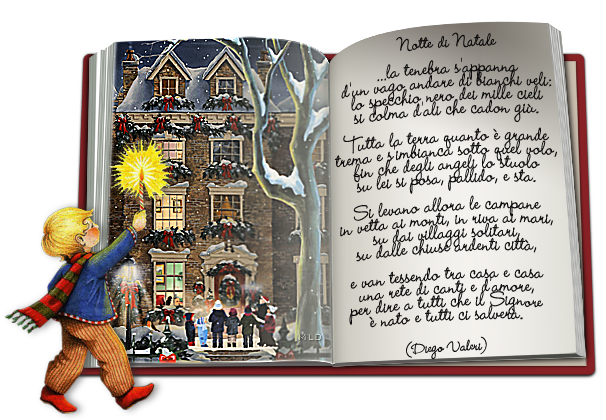 Notte di Natale
...la tenebra s'appanna
d'un vago andare di bianchi veli:
lo specchio nero dei mille cieli
si colma d'ali che cadon giù.
Tutta la terra quanto è grande
trema e s'imbianca sotto quel volo,
fin che degli angeli lo stuolo
su lei si posa, pallido, e sta.
Si levano allora le campane
in vetta ai monti, in riva ai mari,
su dai villaggi solitari,
su dalle chiuse ardenti città,
e van tessendo tra casa e casa
una rete di canti e d'amore,
per dire a tutti che il Signore
è nato e tutti ci salverà.
(Diego Valeri)
MLD